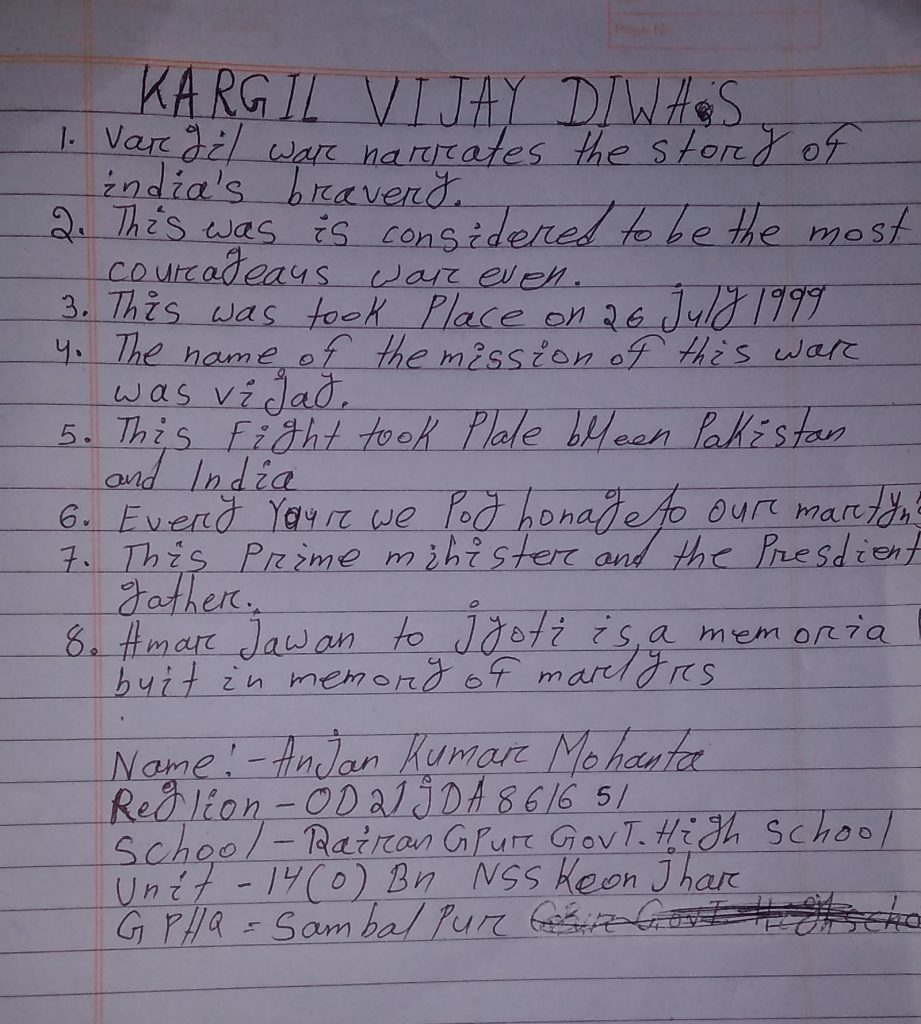 Page No
KARGIL VIJAY DIWAS
1. Vargil war narrates the story of
india's bravery.
2. This was is considered to be the most
courageaus war even.
3. This was took Place on 26 july 1999
4. The name of the mission of this war
was vijay.
5. This Fight took Plale btleen Pakistan
and India
6. Every Yaur we Poy honage to our martyrs
7. This Prime mihister and the Presdient
gather.
8. Amar Jawan to jyoti is a memoria
buit in memory of martyrs
Name:- Anjan Kumar Mohanta
Reglion - OD21JDA861651
School - Rairan GPur GovT. High School
Unit - 14(0) Bn NSS Keonjhar
GPHQ = Sambal Pur